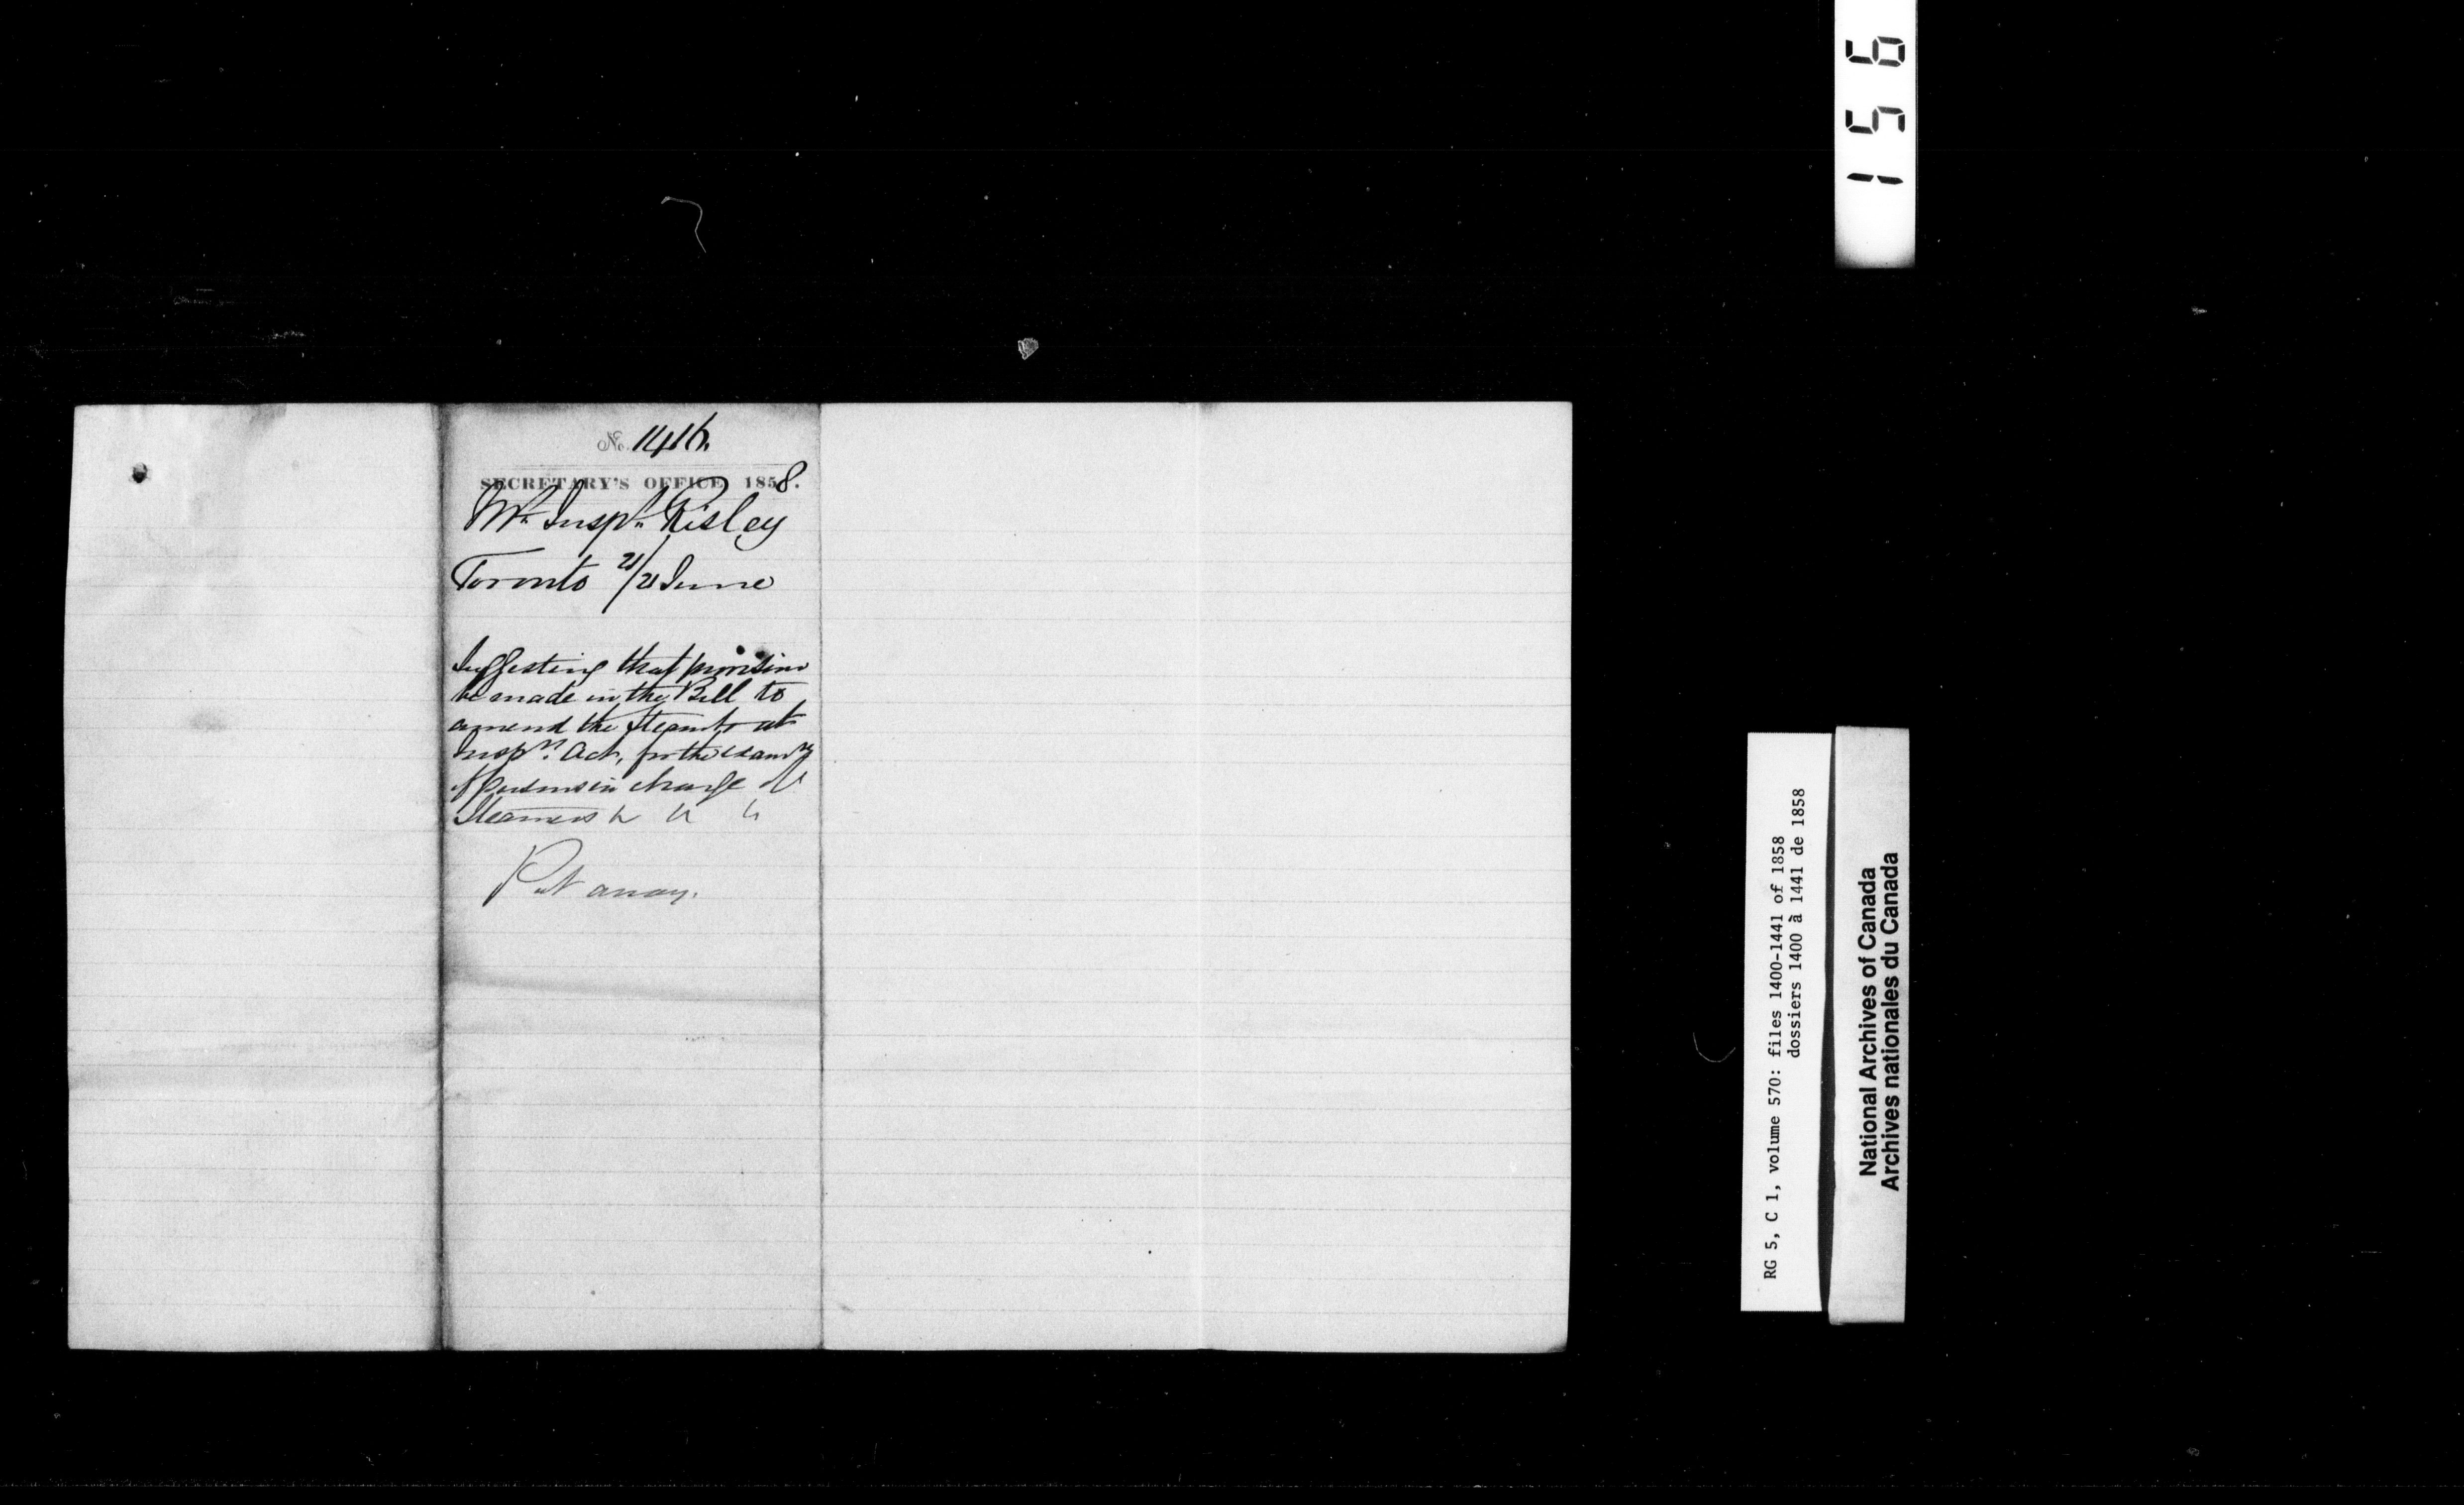 No. 1416.
SECRETARY'S OFFICE 1858.
Mr. Inspr. Risley
Toronto 21/21 June
Suggesting that provision
be made in the Bill to
amend the Steamboat
Inspn. Act, for the examn.
of persons in charge of
Steamers
Put away.
156
RG 5, C 1, volume 570: files 1400-1441 of 1858
dossiers 1400 à 1441 de 1858
National Archives of Canada
Archives nationales du Canada